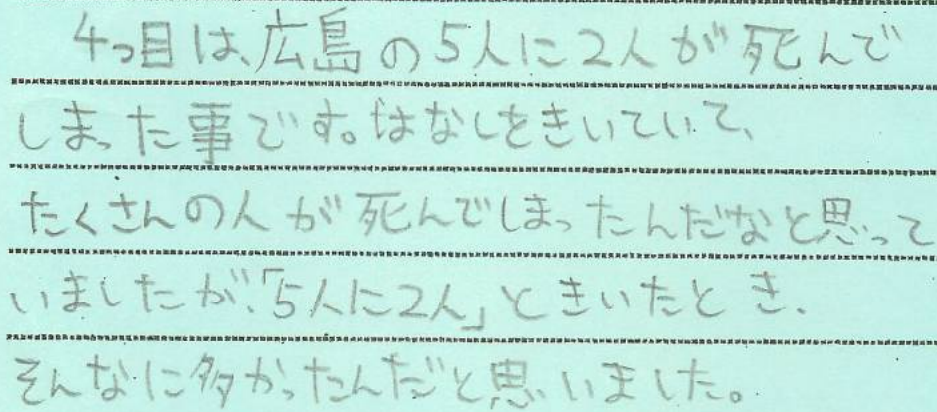 4つ目は、広島の5人に2人が死んで
しまった事です。はなしをきいていて、
たくさんの人が死んでしまったんだなと思って
いましたが、「5人に2人」ときいたとき、
そんなに多かったんだと思いました。